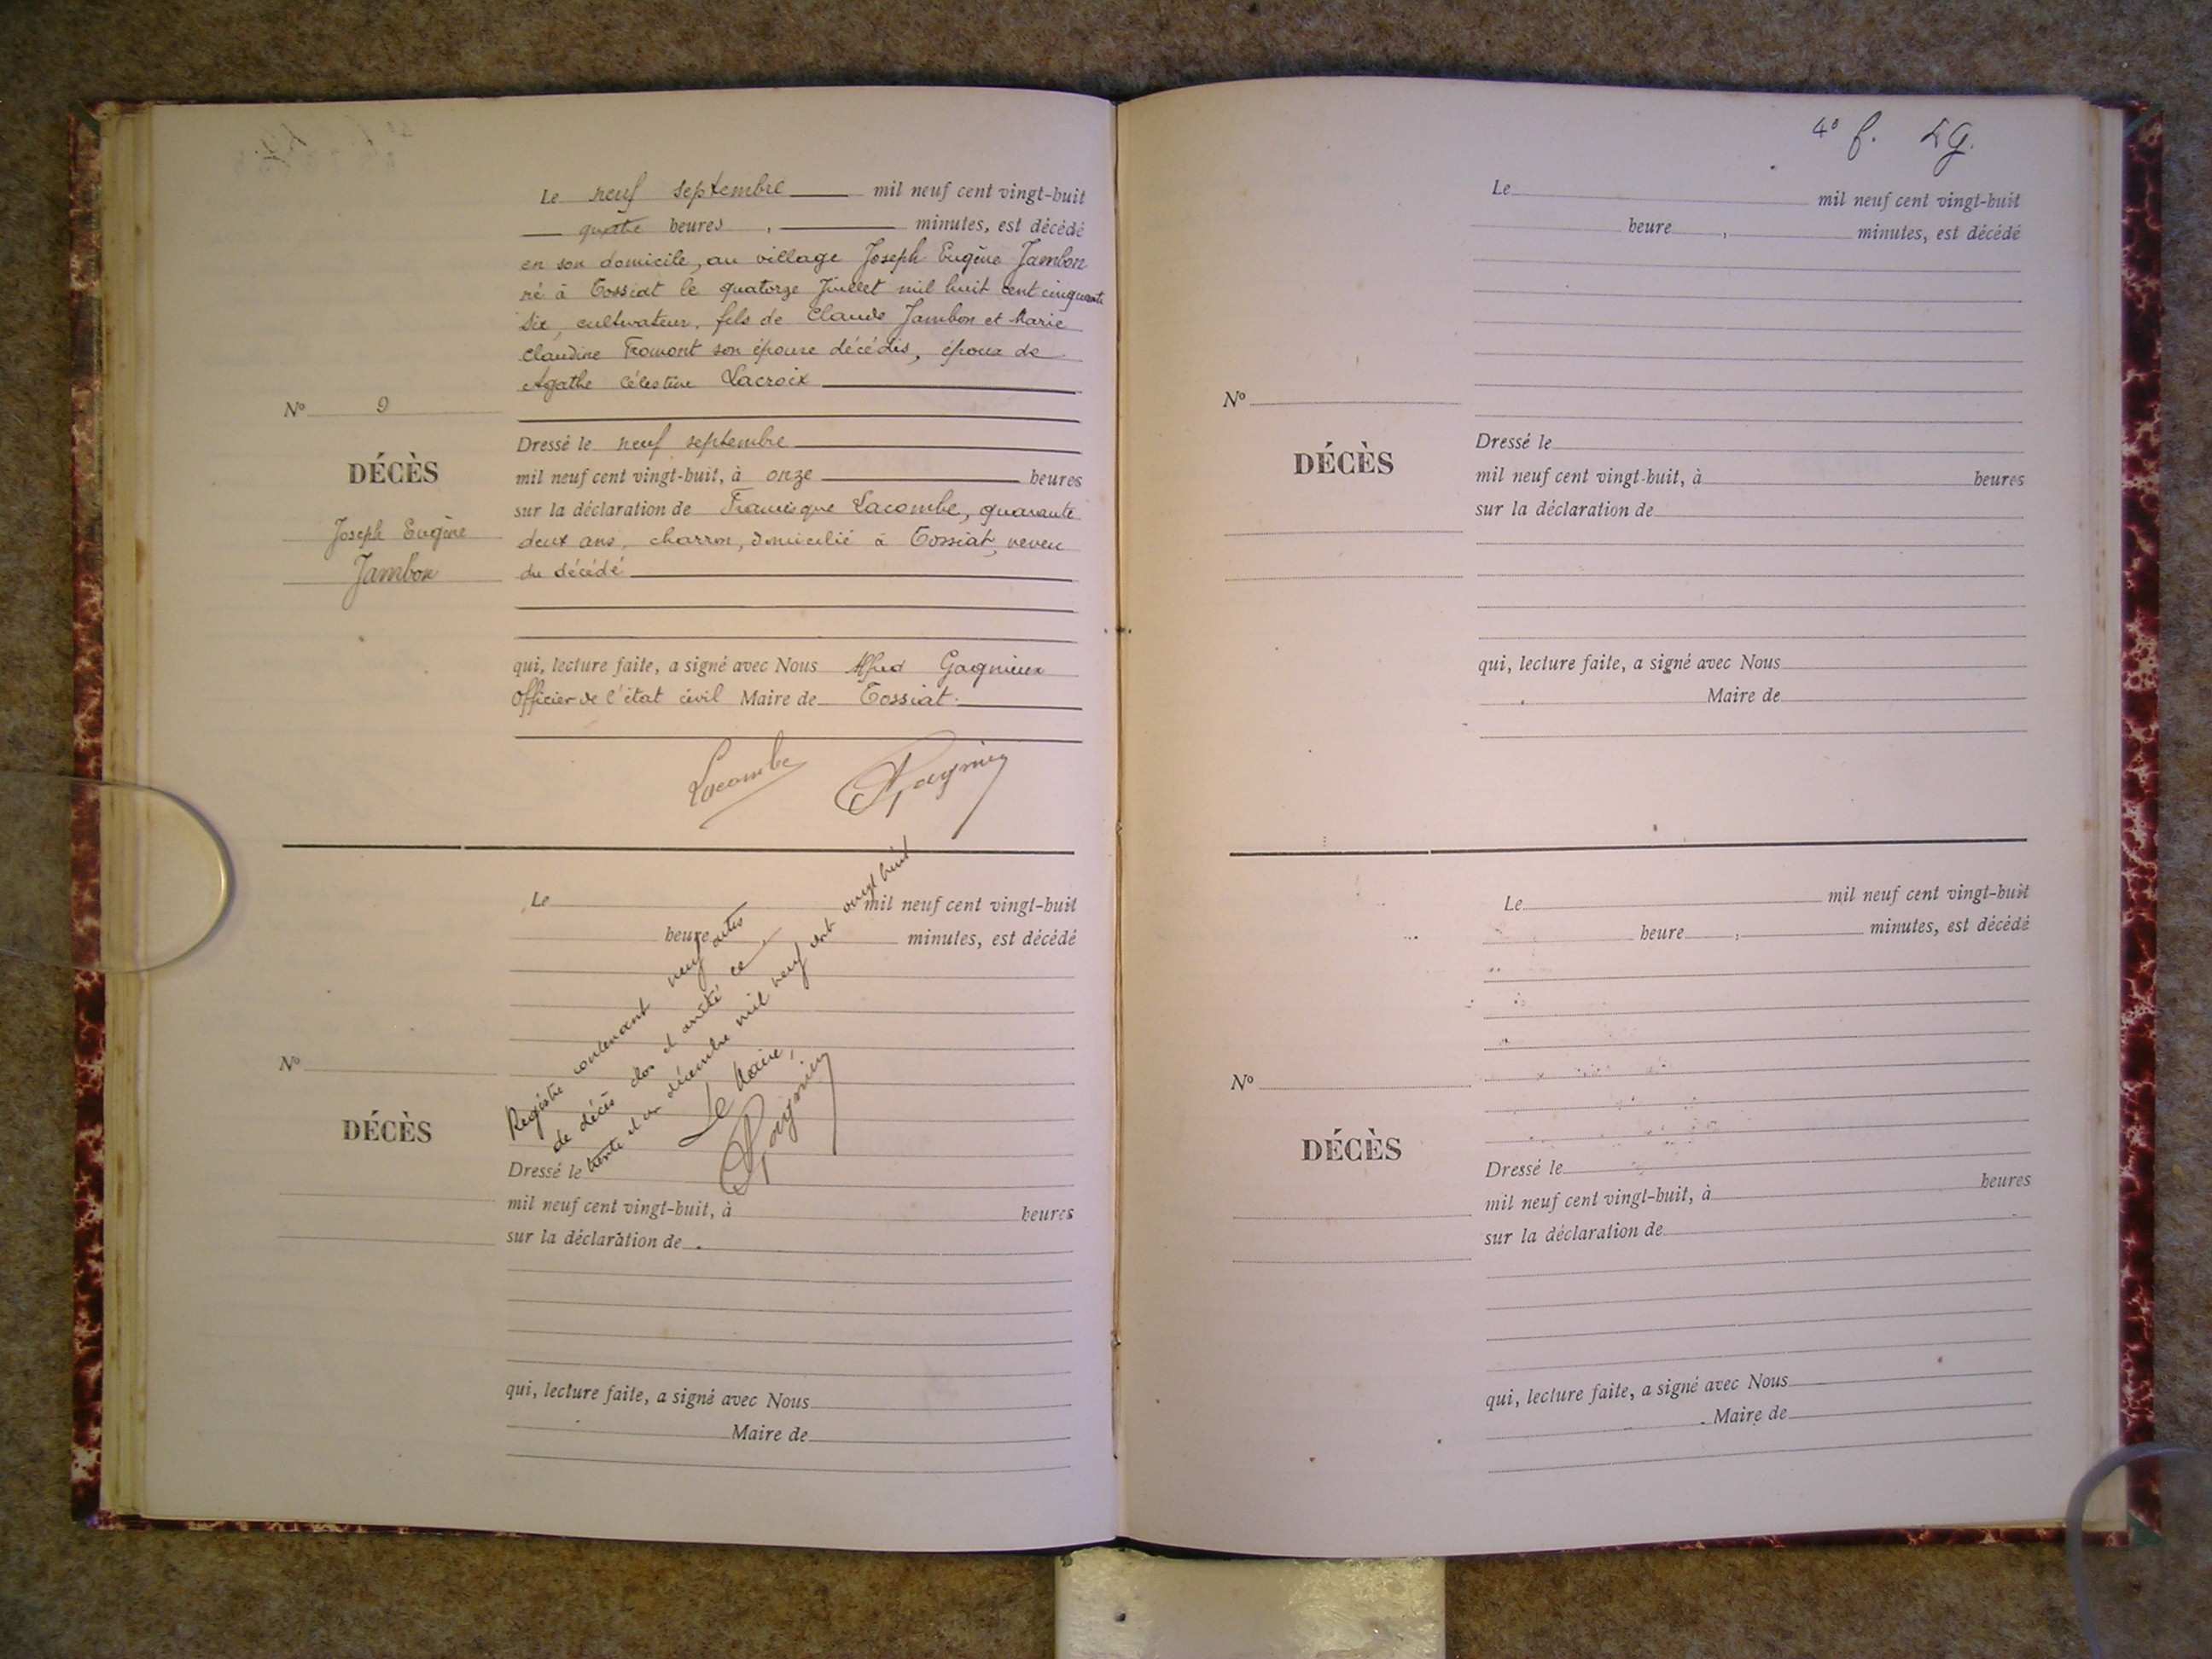 Le neuf septembre mil neuf cent vingt-huit
quatre heures , minutes, est décédé
en son domicile, au village Joseph Eugène Jambon
né à Tossiat le quatorze Juillet mil huit cent cinquante
six, cultivateur, fils de Claude Jambon et Marie
Claudine Fromont son épouse décédés, époux de
Agathe Célestine Lacroix
N° 9
DÉCÈS
Joseph Eugène
Jambon
Dressé le neuf septembre
mil neuf cent vingt-huit, à onze heures
sur la déclaration de Francisque Lacombe, quarante
deux ans, charron, domicilié à Tossiat, neveu
du décédé
qui, lecture faite, a signé avec Nous Alfred Gagnieux
Officier de l'état civil Maire de Tossiat.
Lacombe
Le mil neuf cent vingt-huit
heure , minutes, est décédé
Registre contenant neuf actes
de décès clos et arrêté ce
trente et un décembre mil neuf cent vingt huit
Le Maire,
N°
DÉCÈS
Dressé le
mil neuf cent vingt-huit, à heures
sur la déclaration de
qui, lecture faite, a signé avec Nous
Maire de
4° f.
Le mil neuf cent vingt-huit
heure , minutes, est décédé
N°
DÉCÈS
Dressé le
mil neuf cent vingt-huit, à heures
sur la déclaration de
qui, lecture faite, a signé avec Nous
Maire de
Le mil neuf cent vingt-huit
heure , minutes, est décédé
N°
DÉCÈS
Dressé le
mil neuf cent vingt-huit, à heures
sur la déclaration de
qui, lecture faite, a signé avec Nous
Maire de